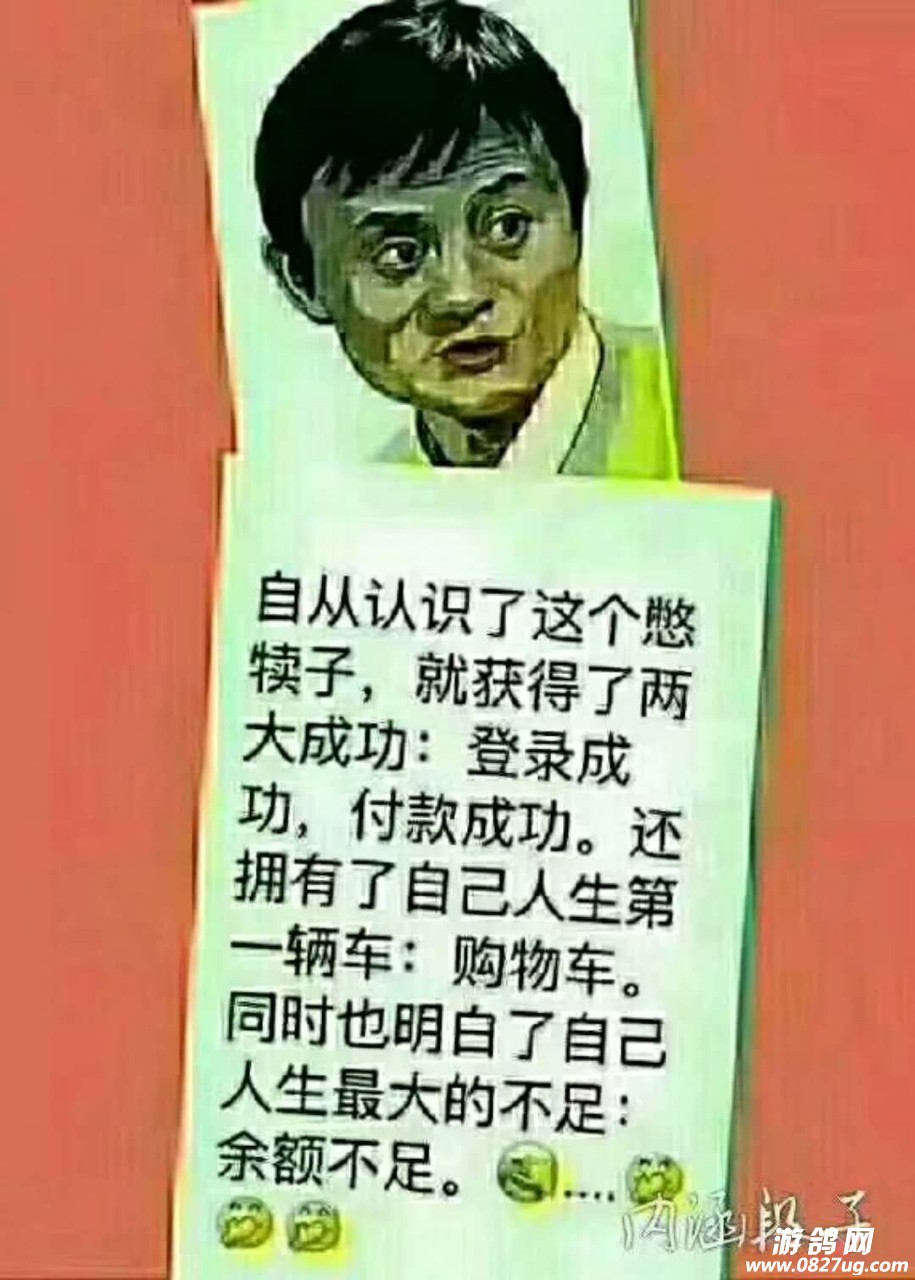 自从认识了这个憋
犊子，就获得了两
大成功：登录成
功，付款成功。还
拥有了自己人生第
一辆车：购物车。
同时也明白了自己
人生最大的不足：
余额不足。....
内涵段子
游鸽网
www.0827ug.com